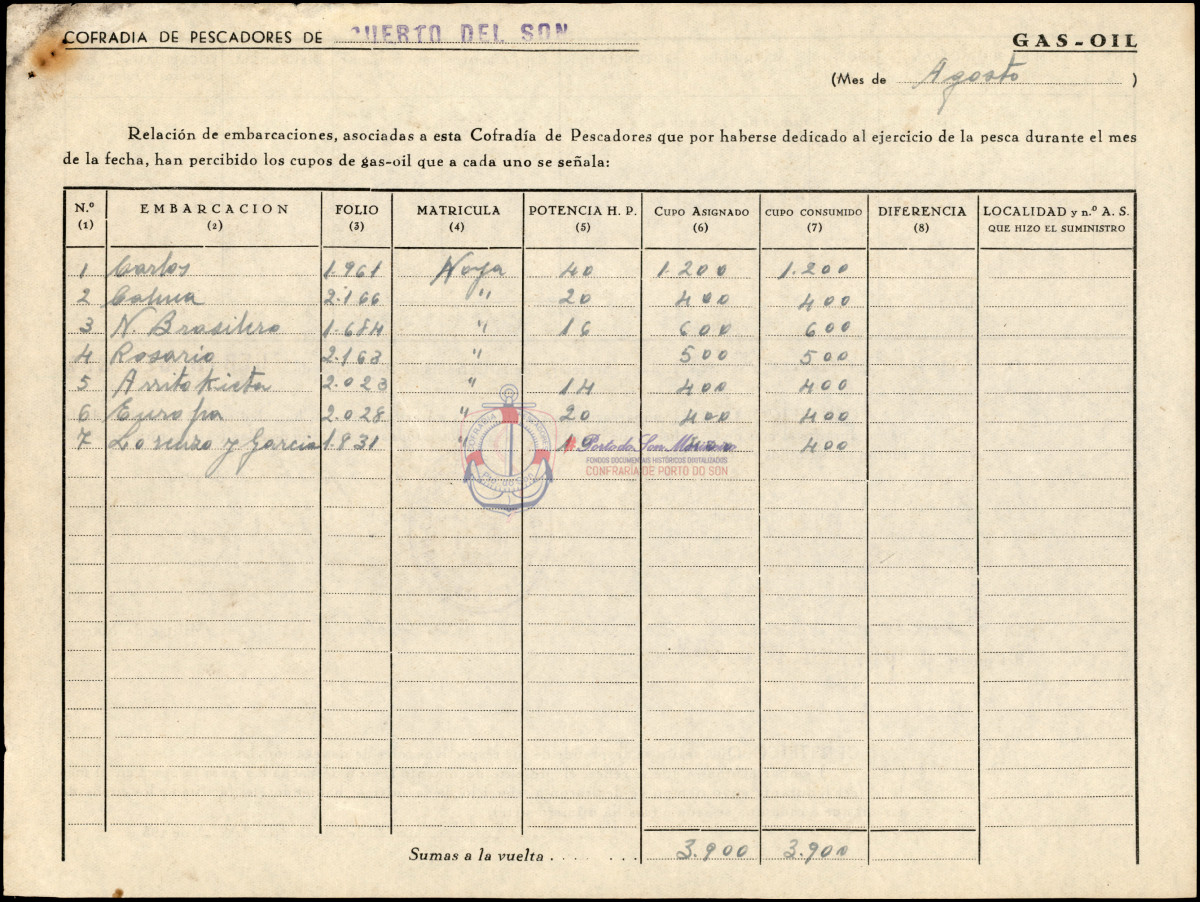 COFRADIA DE PESCADORES DE PUERTO DEL SON
GAS-OIL
(Mes de Agosto )
Relación de embarcaciones, asociadas a esta Cofradía de Pescadores que por haberse dedicado al ejercicio de la pesca durante el mes
de la fecha, han percibido los cupos de gas-oil que a cada uno se señala:
N.º EMBARCACION FOLIO MATRICULA POTENCIA H. P. CUPO ASIGNADO CUPO CONSUMIDO DIFERENCIA LOCALIDAD y n.º A. S.
(1) (2) (3) (4) (5) (6) (7) (8) QUE HIZO EL SUMINISTRO
1 Carlos 1.961 Noya 40 1.200 1.200
2 2.166 " 20 400 400
3 N. Brasilero 1.684 " 16 600 600
4 Rosario 2.163 " 500 500
5 Arritokieta 2.023 " 14 400 400
6 Europa 2.028 " 20 400 400
7 Lorenzo y Garcia 1.831 " 400 400
Porto do Son Mariñeiro
FONDOS DOCUMENTAIS HISTÓRICOS DIGITALIZADOS
CONFRARÍA DE PORTO DO SON
Sumas a la vuelta . . . . . . . 3.900 3.900